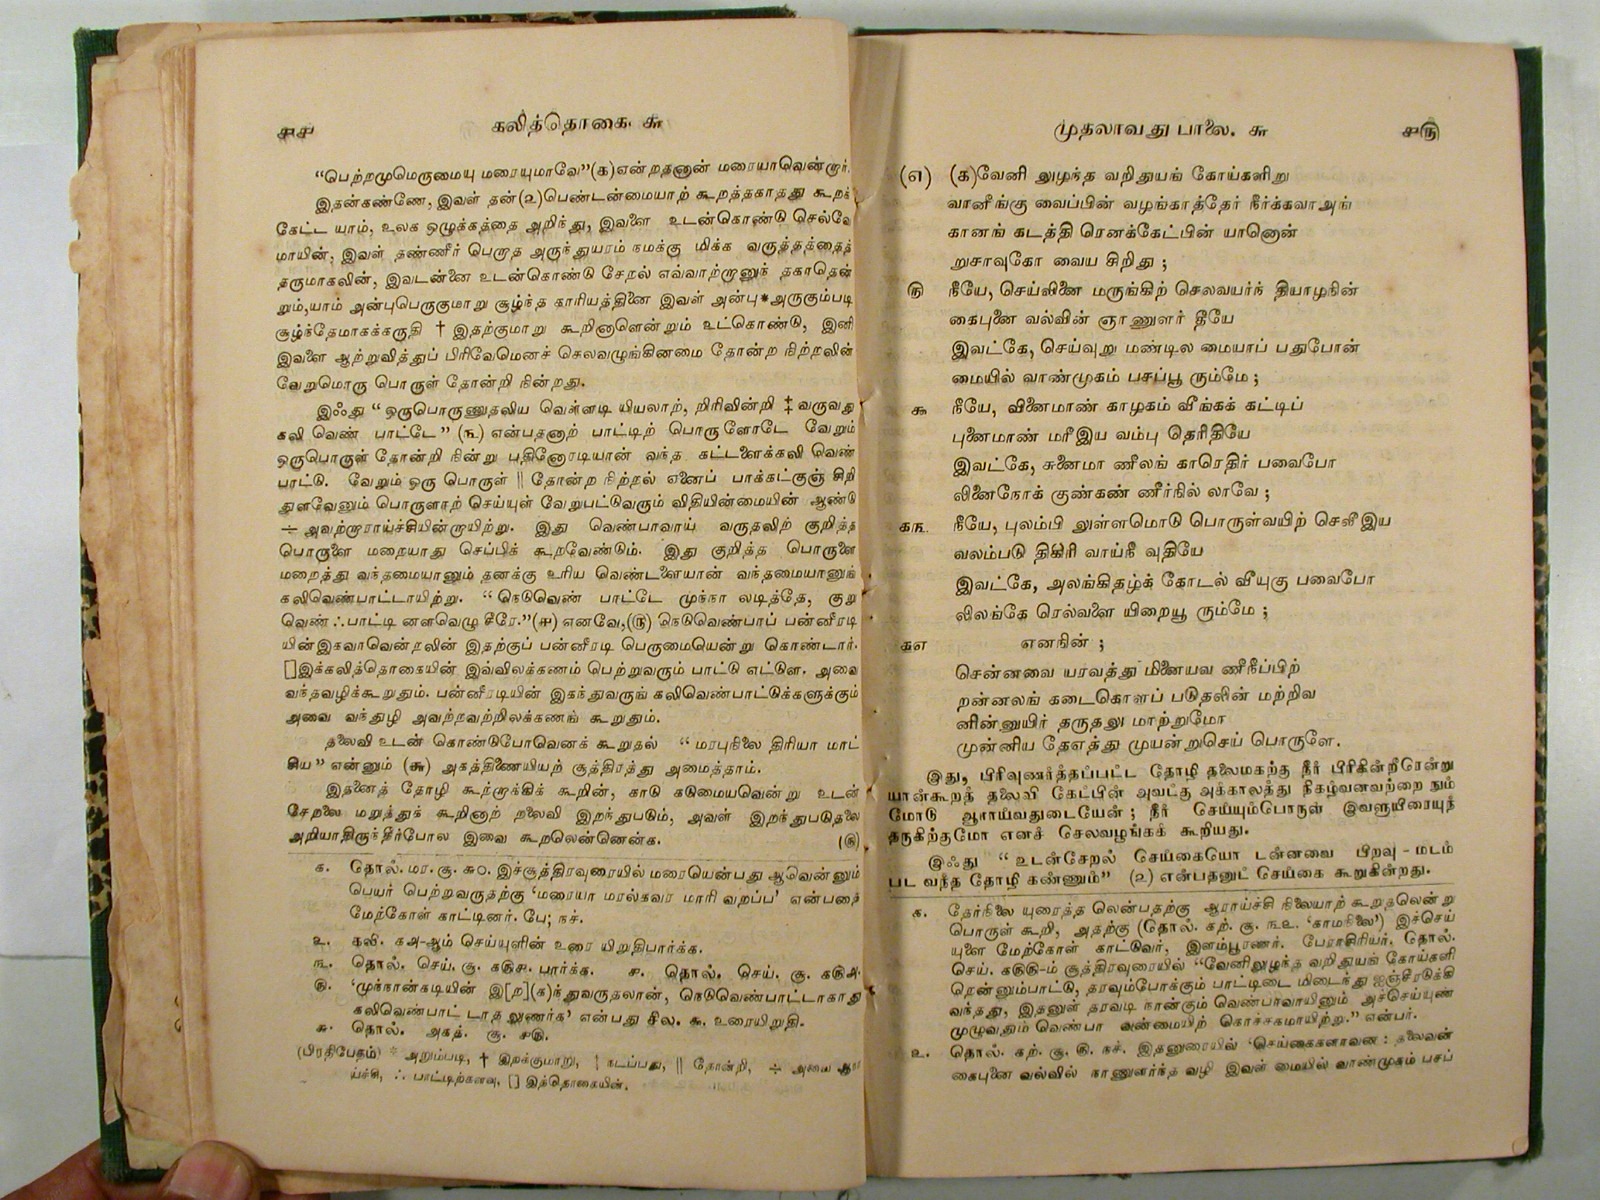 ௪௪ கலித்தொகை. ௬
“பெற்றமுமெருமையு மரையுமாவே”(௧)என்றதனான் மரையாவென்றார்.
இதன்கண்ணே, இவள் தன்(௨)பெண்டன்மையாற் கூறத்தகாதது கூறக்
கேட்ட யாம், உலக ஒழுக்கத்தை அறிந்து, இவளை உடன்கொண்டு செல்வே
மாயின், இவள் தண்ணீர் பெறாத அருந்துயரம் நமக்கு மிக்க வருத்தத்தைத்
தருமாகலின், இவடன்னை உடன்கொண்டு சேறல் எவ்வாற்றானுந் தகாதென்
றும்,யாம் அன்புபெருகுமாறு சூழ்ந்த காரியத்தினை இவள் அன்பு*அருகும்படி
சூழ்ந்தேமாகக்கருதி † இதற்குமாறு கூறினாளென்றும் உட்கொண்டு, இனி
இவளை ஆற்றுவித்துப் பிரிவேமெனச் செலவழுங்கினமை தோன்ற நிற்றலின்
வேறுமொரு பொருள் தோன்றி நின்றது.
இஃது “ஒருபொருணுதலிய வெள்ளடி யியலாற், றிரிவின்றி ‡ வருவது
கலி வெண் பாட்டே” (௩) என்பதனாற் பாட்டிற் பொருளோடே வேறும்
ஒருபொருள் தோன்றி நின்று பதினோரடியான் வந்த கட்டளைக்கலி வெண்
பாட்டு. வேறும் ஒரு பொருள் || தோன்ற நிற்றல் ஏனைப் பாக்கட்குஞ் சிறி
துளவேனும் பொருளாற் செய்யுள் வேறுபட்டுவரும் விதியின்மையின் ஆண்டு
÷ அவற்றாராய்ச்சியின்றாயிற்று. இது வெண்பாவாய் வருதலிற் குறித்த
பொருளை மறையாது செப்பிக் கூறவேண்டும். இது குறித்த பொருளை
மறைத்து வந்தமையானும் தனக்கு உரிய வெண்டளையான் வந்தமையானுங்
கலிவெண்பாட்டாயிற்று. “நெடுவெண் பாட்டே முந்நா லடித்தே, குறு
வெண் ∴பாட்டி னளவெழு சீரே.”(௪) எனவே,(௫) நெடுவெண்பாப் பன்னீரடி
யின்இகவாவென்றலின் இதற்குப் பன்னீரடி பெருமையென்று கொண்டார்.
[]இக்கலித்தொகையின் இவ்விலக்கணம் பெற்றுவரும் பாட்டு எட்டுள. அவை
வந்தவழிக்கூறுதும். பன்னீரடியின் இகந்துவருங் கலிவெண்பாட்டுக்களுக்கும்
அவை வந்துழி அவற்றவற்றிலக்கணங் கூறுதும்.
தலைவி உடன் கொண்டுபோவெனக் கூறுதல் “மரபுநிலை திரியா மாட்
சிய” என்னும் (௬) அகத்திணையியற் சூத்திரத்து அமைத்தாம்.
இதனைத் தோழி கூற்றாக்கிக் கூறின், காடு கடுமையவென்று உடன்
சேறலை மறுத்துக் கூறினாற் றலைவி இறந்துபடும், அவள் இறந்துபடுதலை
அறியாதிருந்தீர்போல இவை கூறலென்னென்க. (௫)
௧. தொல். மர. சூ. ௬௦. இச்சூத்திரவுரையில் மரையென்பது ஆவென்னும்
பெயர் பெற்றவருதற்கு ‘மரையா மரல்கவர மாரி வறப்ப’ என்பதை
மேற்கோள் காட்டினர். பே; நச்.
௨. கலி. ௧௮-ஆம் செய்யுளின் உரை யிறுதிபார்க்க.
௩. தொல். செய். சூ. ௧௫௩. பார்க்க. ௪. தொல். செய். சூ. ௧௫௮.
௫. ‘முந்நான்கடியின் இ[ற](க)ந்துவருதலான், நெடுவெண்பாட்டாகாது
கலிவெண்பாட் டாத லுணர்க’ என்பது சில. கூ. உரையிறுதி.
௬. தொல். அகத். சூ. ௪௫.
(பிரதிபேதம்) * அறும்படி, † இறக்குமாறு, ‡ நடப்பது, || தோன்றி, ÷ அவை ஆரா
ய்ச்சி, ∴ பாட்டிற்களவு, [] இத்தொகையின்.
முதலாவது பாலை. ௬ ௪௫
(௭) (௧)வேனி லுழந்த வறிதுயங் கோய்களிறு
வானீங்கு வைப்பின் வழங்காத்தேர் நீர்க்கவாஅங்
கானங் கடத்தி ரெனக்கேட்பின் யானொன்
றுசாவுகோ வைய சிறிது ;
௫ நீயே, செய்வினை மருங்கிற் செலவயர்ந் தியாழநின்
கைபுனை வல்வின் ஞாணுளர் தீயே
இவட்கே, செய்வுறு மண்டில மையாப் பதுபோன்
மையில் வாண்முகம் பசப்பூ ரும்மே ;
௯ நீயே, வினைமாண் காழகம் வீங்கக் கட்டிப்
புனைமாண் மரீஇய வம்பு தெரிதியே
இவட்கே, சுனைமா ணீலங் காரெதிர் பவைபோ
லினைநோக் குண்கண் ணீர்நில் லாவே ;
௧௩. நீயே, புலம்பி லுள்ளமொடு பொருள்வயிற் செலீஇய
வலம்படு திகிரி வாய்நீ வுதியே
இவட்கே, அலங்கிதழ்க் கோடல் வீயுகு பவைபோ
லிலங்கே ரெல்வளை யிறையூ ரும்மே ;
௧௭ எனநின் ;
சென்னவை யரவத்து மினையவ ணீநீப்பிற்
றன்னலங் கடைகொளப் படுதலின் மற்றிவ
ளின்னுயிர் தருதலு மாற்றுமோ
முன்னிய தேஎத்து முயன்றுசெய் பொருளே.
இது, பிரிவுணர்த்தப்பட்ட தோழி தலைமகற்கு நீர் பிரிகின்றீரென்று
யான்கூறத் தலைவி கேட்பின் அவட்கு அக்காலத்து நிகழ்வனவற்றை நும்
மோடு ஆராய்வதுடையேன் ; நீர் செய்யும்பொருள் இவளுயிரையுந்
தருகிற்குமோ எனச் செலவழுங்கக் கூறியது.
இஃது “உடன்சேறல் செய்கையோ டன்னவை பிறவு - மடம்
பட வந்த தோழி கண்ணும்” (௨) என்பதனுட் செய்கை கூறுகின்றது.
௧. தேர்நிலை யுரைத்த லென்பதற்கு ஆராய்ச்சி நிலையாற் கூறுதலென்று
பொருள் கூறி, அதற்கு (தொல். கற். சூ. ௩௨. ‘காமநிலை’) இச்செய்
யுளை மேற்கோள் காட்டுவர், இளம்பூரணர். பேராசிரியர். தொல்.
செய். ௧௫௫-ம் சூத்திரவுரையில் “வேனிலுழந்த வறிதுயங் கோய்களி
றென்னும்பாட்டு, தரவும்போக்கும் பாட்டிடை மிடைந்து ஐஞ்சீரடுக்கி
வந்தது, இதனுள் தரவடி நான்கும் வெண்பாவாயினும் அச்செய்யுண்
முழுவதும் வெண்பா வன்மையிற் கொச்சகமாயிற்று.” என்பர்.
௨. தொல். கற். சூ. ௯. நச். இதனுரையில் ‘செய்கைகளாவன : தலைவன்
கைபுனை வல்வில் நாணுளர்ந்த வழி இவள் மையில் வாண்முகம் பசப்